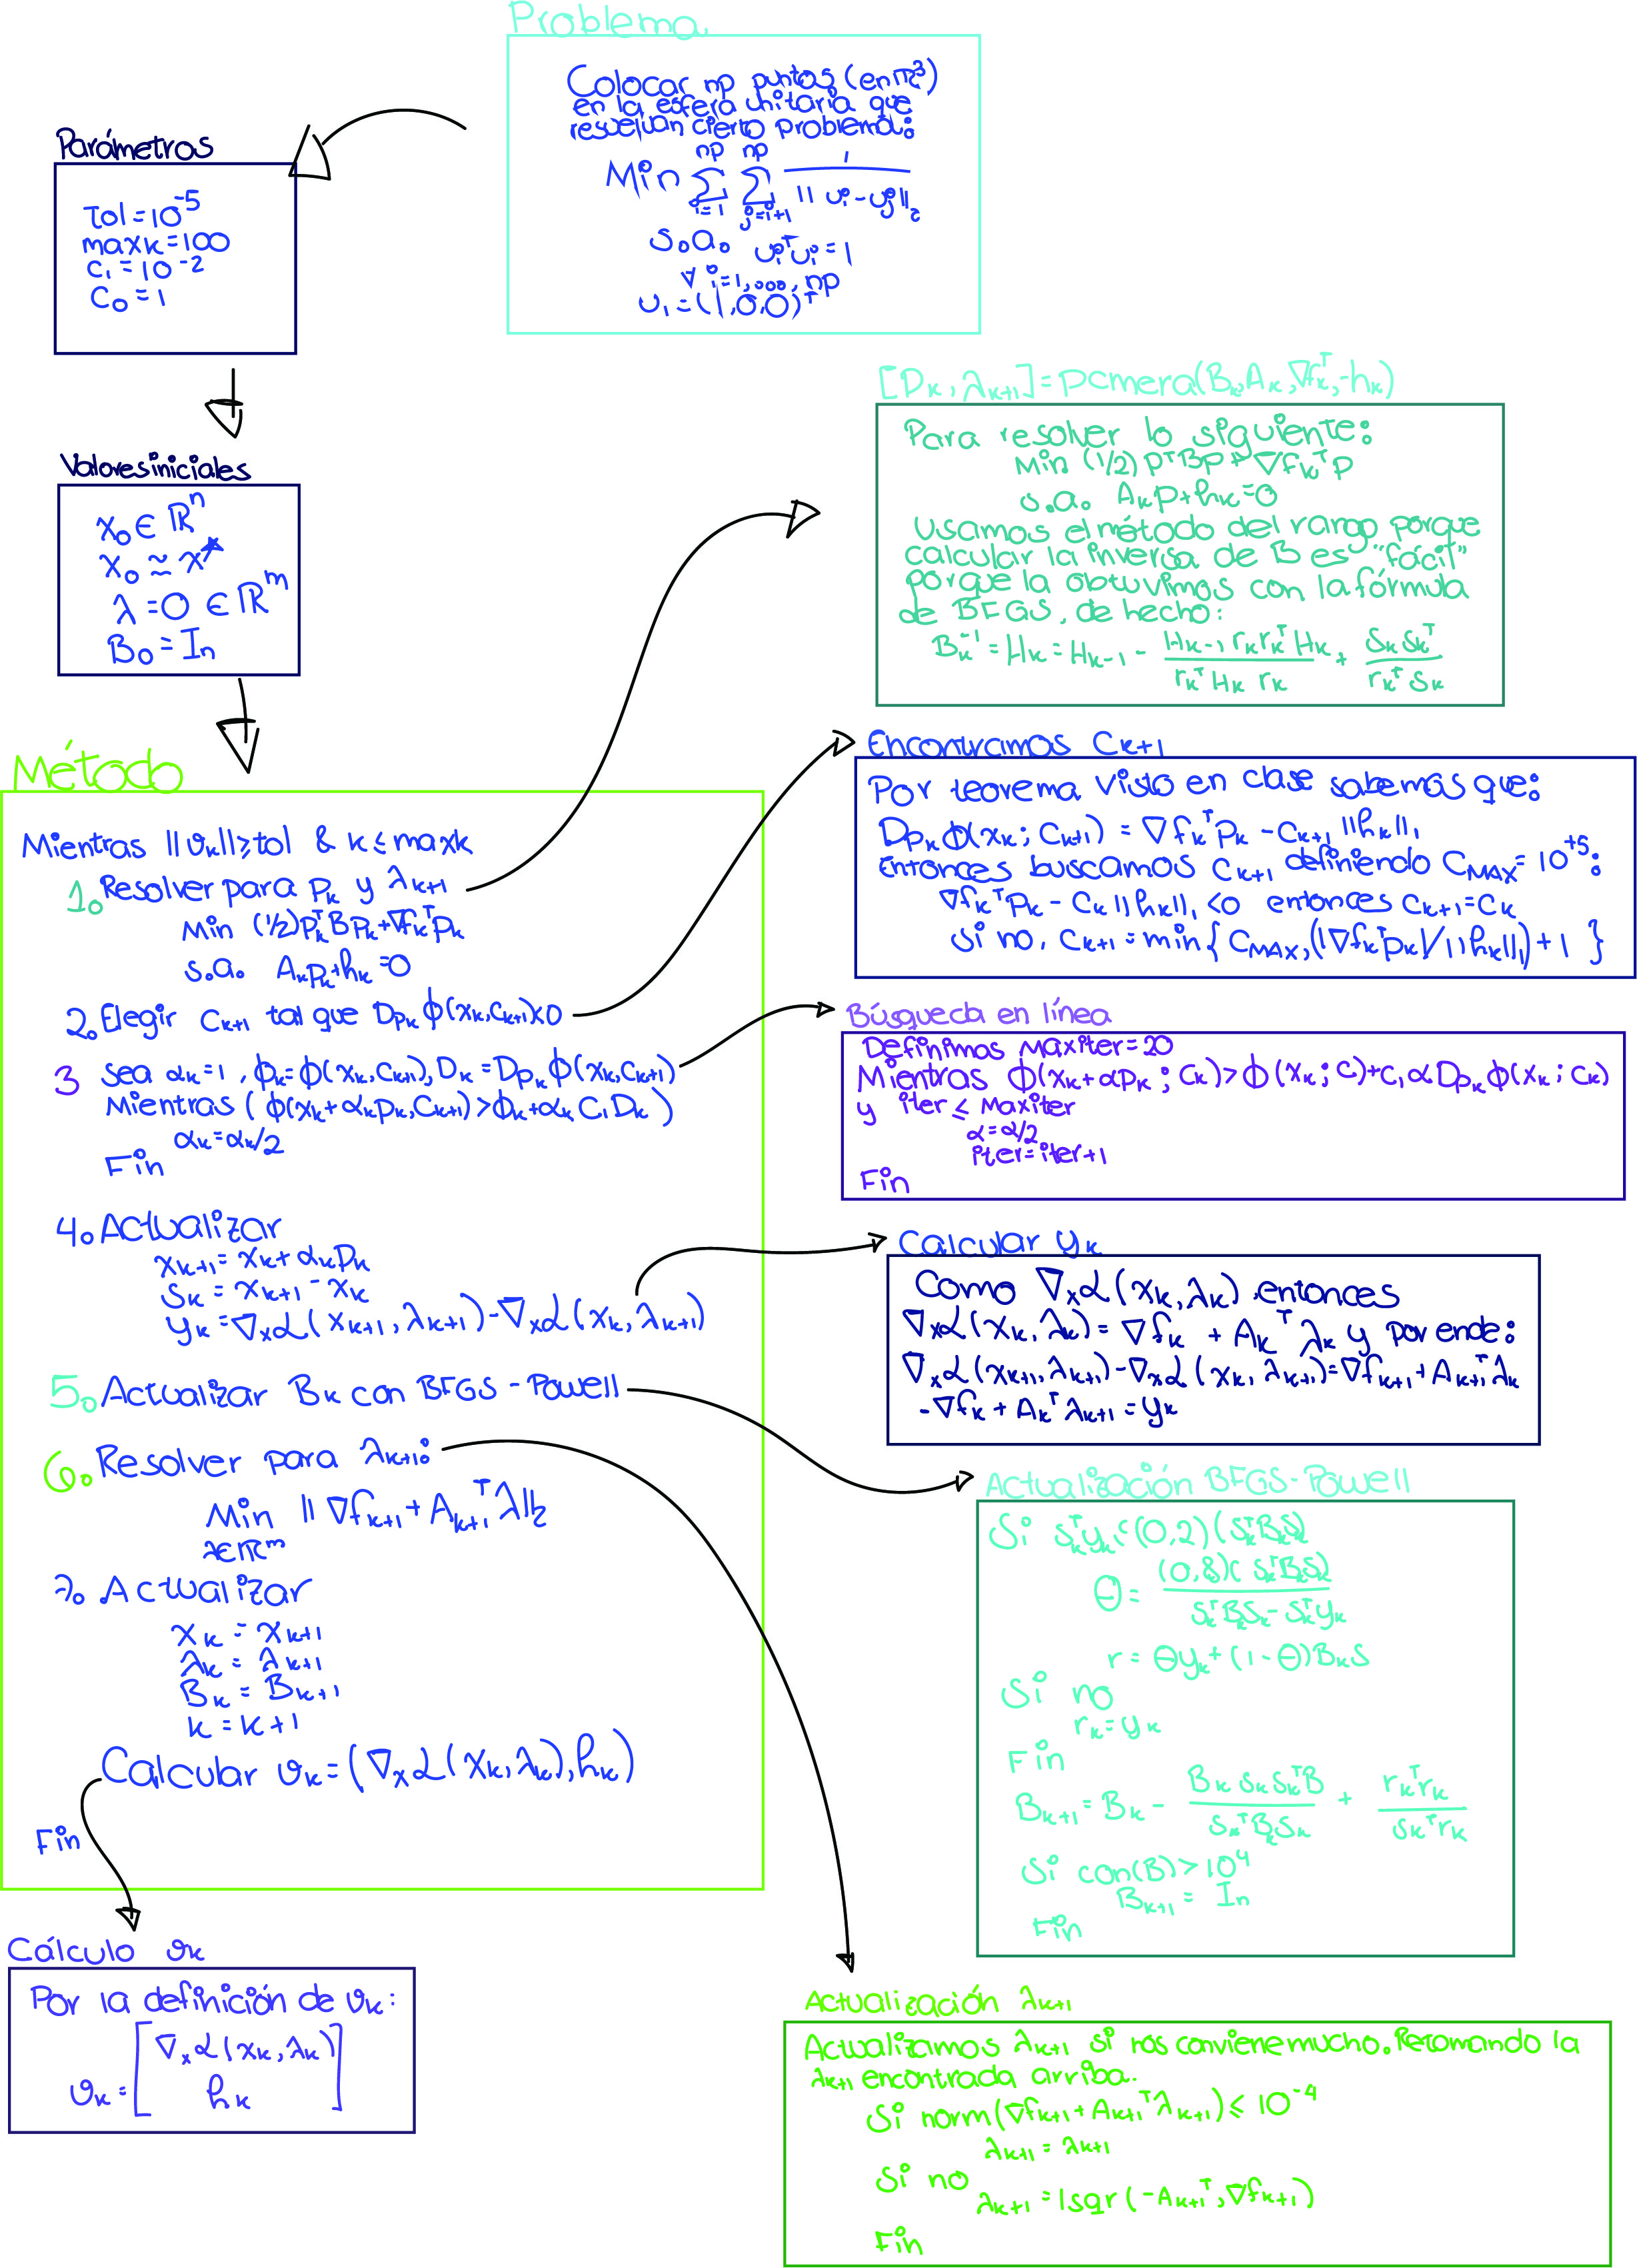 Problema
Colocar np puntos (en ℝ³)
en la esfera unitaria que
resuelvan cierto problema:
Min Σ_{i=1}^{np} Σ_{j=i+1}^{np} 1 / ||υi - υj||₂
s.a. υiᵀυi = 1
∀ i=1,...,np
υ₁=(1,0,0)ᵀ
Parámetros
tol=10⁻⁵
maxk=100
C₁=10⁻²
C₀=1
Valores iniciales
x₀ ∈ ℝⁿ
x₀ ≈ x*
λ=0 ∈ ℝᵐ
B₀=In
Método
Mientras ||υk||≥tol & k≤maxk
1. Resolver para pk y λk+1
Min (1/2)pkᵀBpk+∇fkᵀpk
s.a. Akpk+hk=0
2. Elegir Ck+1 tal que Dpk ϕ(xk,Ck+1)<0
3 Sea αk=1, ϕk=ϕ(xk,Ck+1), Dk=Dpk ϕ(xk,Ck+1)
Mientras (ϕ(xk+αkpk,Ck+1)>ϕk+αk C₁Dk)
αk=αk/2
Fin
4. Actualizar
xk+1=xk+αkpk
sk=xk+1-xk
yk=∇xℒ(xk+1,λk+1)-∇xℒ(xk,λk+1)
5. Actualizar Bk con BFGS-Powell
6. Resolver para λk+1:
Min ||∇fk+1+Ak+1ᵀλ||₂
λ∈ℝᵐ
7. Actualizar
xk=xk+1
λk=λk+1
Bk=Bk+1
k=k+1
Calcular υk=(∇xℒ(xk,λk),hk)
Fin
Cálculo υk
Por la definición de υk:
υk=[∇xℒ(xk,λk)
hk]
[Pk,λk+1]=pcmera(Bk,Ak,∇fkᵀ,-hk)
Para resolver lo siguiente:
Min (1/2)pᵀBp+∇fkᵀp
s.a. Akp+hk=0
Usamos el método del rango porque
calcular la inversa de B es "fácil"
porque la obtuvimos con la fórmula
de BFGS, de hecho:
Bk⁻¹=Hk=Hk-1 - (Hk-1 rk rkᵀ Hk)/(rkᵀ Hk rk) + (sk skᵀ)/(rkᵀ sk)
Encontramos Ck+1
Por teorema visto en clase sabemos que:
Dpk ϕ(xk; Ck+1) = ∇fkᵀpk - Ck+1 ||hk||₁
Entonces buscamos Ck+1 definiendo CMAX=10⁺⁵:
∇fkᵀpk - Ck||hk||₁<0 entonces Ck+1=Ck
Si no, Ck+1=min{CMAX,(|∇fkᵀpk|/||hk||₁)+1}
Búsqueda en línea
Definimos Maxiter=20
Mientras ϕ(xk+αpk; Ck)>ϕ(xk; C)+C₁αDpk ϕ(xk; Ck)
y iter≤Maxiter
α=α/2
iter=iter+1
Fin
Calcular yk
Como ∇xℒ(xk,λk), entonces
∇xℒ(xk,λk)=∇fk+Akᵀλk y por ende:
∇xℒ(xk+1,λk+1)-∇xℒ(xk,λk+1)=∇fk+1+Ak+1ᵀλk
-∇fk+Akᵀλk+1=yk
Actualización BFGS-Powell
Si skᵀyk<(0,2)(skᵀBksk)
θ=(0,8)(skᵀBksk)/(skᵀBksk-skᵀyk)
r=θyk+(1-θ)Bks
Si no
rk=yk
Fin
Bk+1=Bk - (Bk sk skᵀB)/(skᵀBksk) + (rkᵀrk)/(skᵀrk)
Si con(B)>10⁴
Bk+1=In
Fin
Actualización λk+1
Actualizamos λk+1 si nos conviene mucho. Retomando la
λk+1 encontrada arriba.
Si norm(∇fk+1+Ak+1ᵀλk+1)≤10⁻⁴
λk+1=λk+1
Si no
λk+1=lsqr(-Ak+1ᵀ,∇fk+1)
Fin